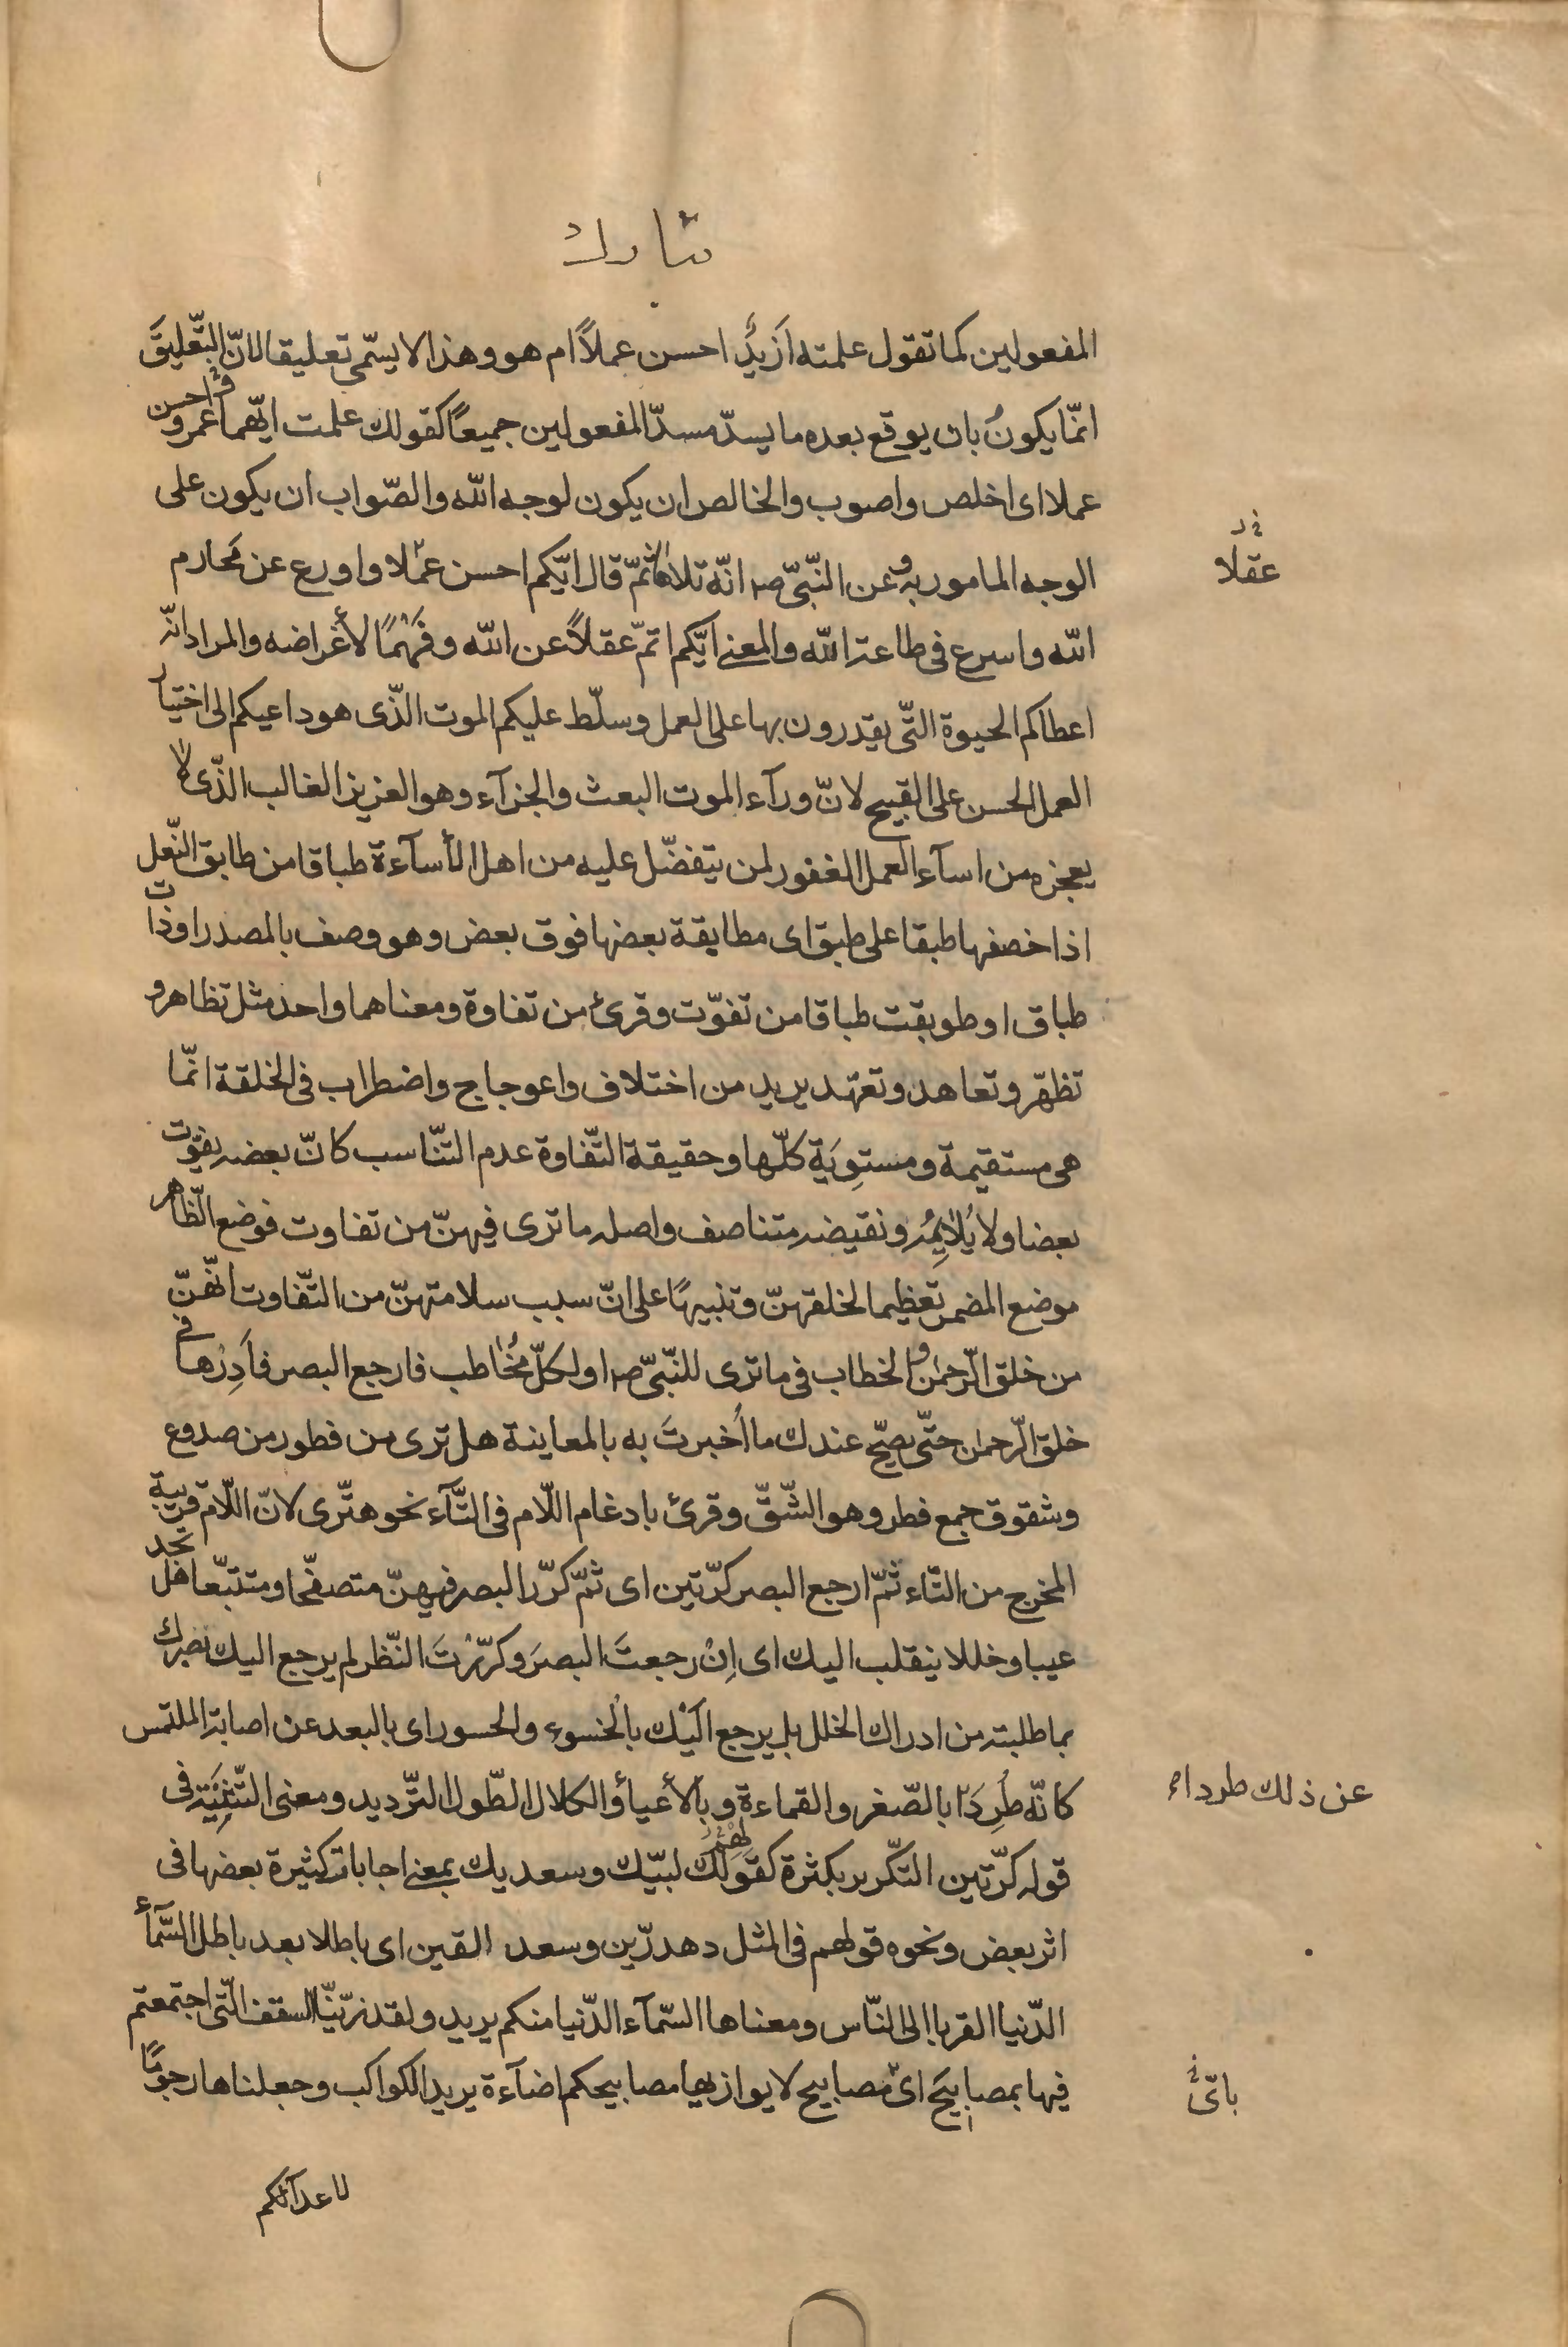 تبارك
المفعولين كما تقول علمته اَزيدٌ احسن عملاً ام هو وهذا لا يسمّى تعليقا لانّ التّعليقَ
انّما يكونُ بان يوقع بعده ما يسدّ مسدّ المفعولين جميعاً كقولك علمت ايّهما عمرو واحسن
عملا اى اخلص واصوب والخالص ان يكون لوجه الله والصّواب ان يكون على
الوجه المامور به وعن النّبىّ صه انّه تلاها ثمّ قال ايّكم احسن عملا واورع عن محارم
عقلا
الله واسرع فى طاعة الله والمعنى ايّكم اتمّ عقلاً عن الله وفهْمًا لأغراضه والمراد انّه
اعطاكم الحيوة التّى يقدرون بها على العمل وسلّط عليكم الموت الذّى هو داعيكم الى اختيار
العمل الحسن على القبيح لانّ ورآء الموت البعث والجزآء وهو العزيز الغالب الذّى لا
يعجزه من اسآء العمل الغفور لمن يتفضّل عليه من اهل الأسآءة طباقا من طابق النّعل
اذا خصفها طبقا على طبق اى مطابقة بعضها فوق بعض وهو وصف بالمصدر او ذات
طباق او طوبقت طباقا من تفوّت وقرئ من تفاوة ومعناهما واحد مثل تظاهر و
تظهّر وتعاهد وتعهّد يريد من اختلاف واعوجاج واضطراب فى الخلقة انّما
هى مستقيمة ومستوِيَة كلّها وحقيقة التّفاوة عدم التنّاسب كانّ بعضه يفوّت
بعضا ولا يُلايِمُه ونقيضه متناصف واصله ما ترى فيهنّ من تفاوت فوضع الظّاهر
موضع المضمر تعظيما لخلقهنّ وتنبيهًا على انّ سبب سلامتهنّ من التّفاوت انّهنّ
من خلق الرّحمن والخطاب فى ما ترى للنّبىّ صه او لكلّ مُخاطب فارجع البصر فاَدِرْها فى
خلق الرّحمن حتّى يصحّ عندك ما اُخبرتَ به بالمعاينة هل ترى من فطور من صدوع
وشقوق جمع فطر وهو الشّقّ وقرئ بادغام اللّام فى التّآء نحو هتّرى لانّ اللّام قريبة
المخرج من التّاء ثمّ ارجع البصر كرّتين اى ثمّ كرّر البصر فيهنّ متصفّحا ومتتبّعا هل تجد
عيبا وخللا ينقلب اليك اى اِنْ رجعتَ البصرَ وكرّرْتَ النّظر لم يرجع اليك بصرك
بما طلبته من ادراك الخلل بل يرجع اليْك بالخسوء والحسور اى بالبعد عن اصابة الملتمس
كانّه طُرِدَ بالصّغر والقماءة وبالأعيأ والكلال الطّول التّرديد ومعنى التّثنِيَة فى
عن ذلك طردا
قوله كرّتين التكّرير بكثرة كقولك لبيّك وسعديك بمعنى اجابات كثيرة بعضها فى
اثر بعض ونحوه قولهم فى المثل دهدرّين وسعد القين اى باطلا بعد باطل السّمآء
الدّنيا القربا الى النّاس ومعناها السّمآء الدّنيا منكم يريد ولقد زيّنّا السقف الّتى اجتمعتم
فيها بمصابيحَ اىّ مصابيح لا يوازيها مصابيحكم اضآءة يريد الكواكب وجعلناها رجومًا
باىّ
لاعدآئكم